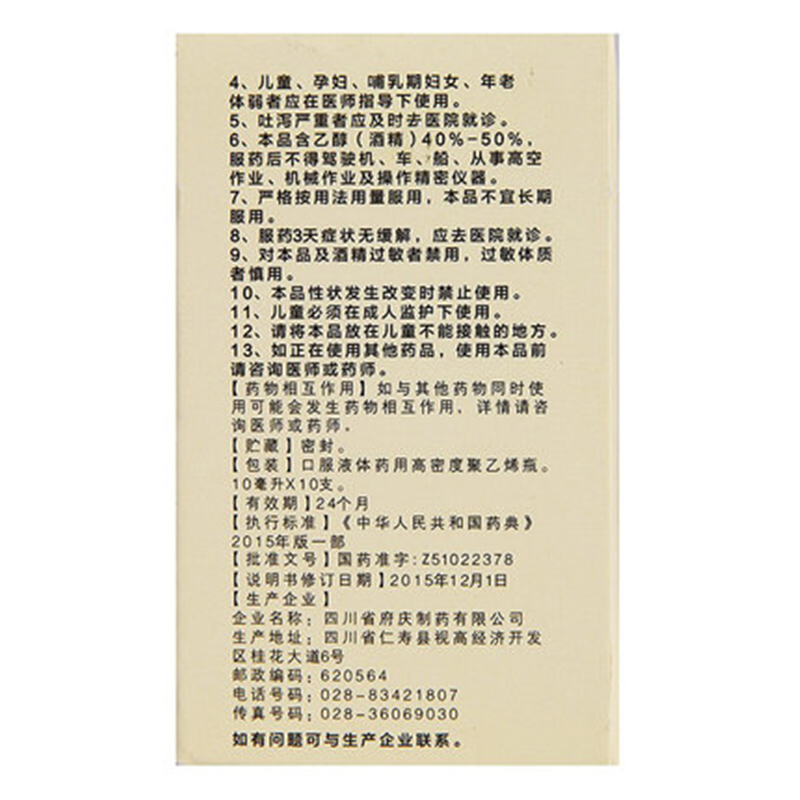 4、儿童、孕妇、哺乳期妇女、年老
体弱者应在医师指导下使用。
5、吐泻严重者应及时去医院就诊。
6、本品含乙醇（酒精）40%-50%，
服药后不得驾驶机、车、船、从事高空
作业、机械作业及操作精密仪器。
7、严格按用法用量服用，本品不宜长期
服用。
8、服药3天症状无缓解，应去医院就诊。
9、对本品及酒精过敏者禁用，过敏体质
者慎用。
10、本品性状发生改变时禁止使用。
11、儿童必须在成人监护下使用。
12、请将本品放在儿童不能接触的地方。
13、如正在使用其他药品，使用本品前
请咨询医师或药师。
【药物相互作用】如与其他药物同时使
用可能会发生药物相互作用、详情请咨
询医师或药师。
【贮藏】密封。
【包装】口服液体药用高密度聚乙烯瓶。
10毫升X10支。
【有效期】24个月
【执行标准】《中华人民共和国药典》
2015年版一部
【批准文号】国药准字:Z51022378
【说明书修订日期】2015年12月1日
【生产企业】
企业名称：四川省府庆制药有限公司
生产地址：四川省仁寿县视高经济开发
区桂花大道6号
邮政编码：620564
电话号码：028-83421807
传真号码：028-36069030
如有问题可与生产企业联系。